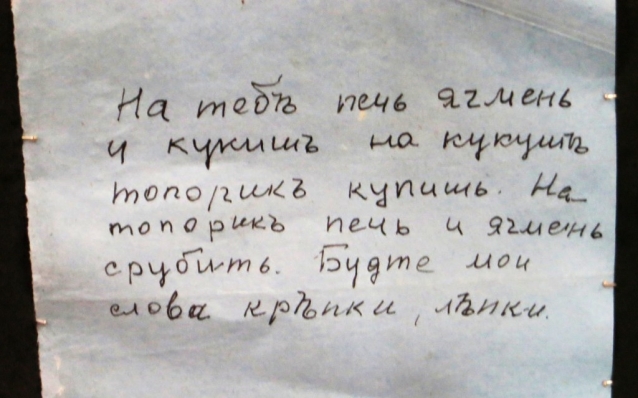 На тебѣ печь ягмень
и кукишъ на кукушъ
топорикъ купишь. На
топорикъ печь и ягмень
срубить. Будте мои
слова крѣпки, лѣпки.